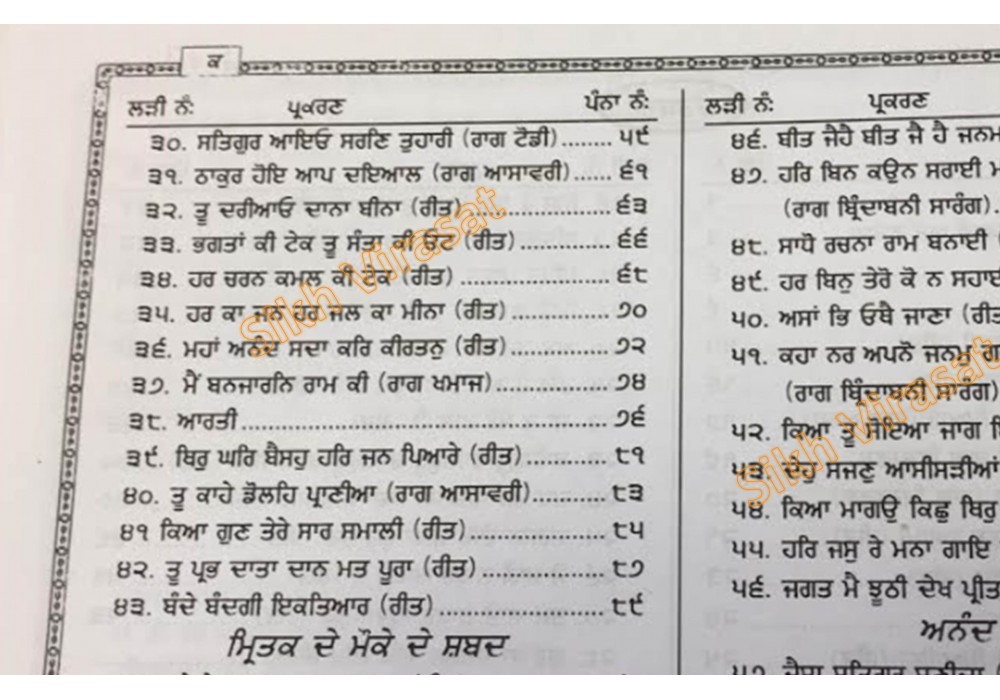 ਕ
ਲੜੀ ਨੰ: ਪ੍ਰਕਰਣ ਪੰਨਾ ਨੰ:
੩੦. ਸਤਿਗੁਰ ਆਇਓ ਸਰਣਿ ਤੁਹਾਰੀ (ਰਾਗ ਟੋਡੀ)....... ੫੯
੩੧. ਠਾਕੁਰ ਹੋਇ ਆਪ ਦਇਆਲ (ਰਾਗ ਆਸਾਵਰੀ)...... ੬੧
੩੨. ਤੂ ਦਰੀਆਓ ਦਾਨਾ ਬੀਨਾ (ਰੀਤ)...................... ੬੩
੩੩. ਭਗਤਾਂ ਕੀ ਟੇਕ ਤੂ ਸੰਤਾ ਕੀ ਓਟ (ਰੀਤ)............... ੬੬
੩੪. ਹਰ ਚਰਨ ਕਮਲ ਕੀ ਟੇਕ (ਰੀਤ) ....................... ੬੮
੩੫. ਹਰ ਕਾ ਜਨ ਹਰ ਜਲ ਕਾ ਮੀਨਾ (ਰੀਤ)................. ੭੦
੩੬. ਮਹਾਂ ਅਨੰਦ ਸਦਾ ਕਰਿ ਕੀਰਤਨੁ (ਰੀਤ)................ ੭੨
੩੭. ਮੈਂ ਬਨਜਾਰਨਿ ਰਾਮ ਕੀ (ਰਾਗ ਖਮਾਜ).................. ੭੪
੩੮. ਆਰਤੀ........................................................ ੭੬
੩੯. ਥਿਰੁ ਘਰਿ ਬੈਸਹੁ ਹਰਿ ਜਨ ਪਿਆਰੇ (ਰੀਤ).............. ੮੧
੪੦. ਤੂ ਕਾਹੇ ਡੋਲਹਿ ਪ੍ਰਾਣੀਆ (ਰਾਗ ਆਸਾਵਰੀ)............. ੮੩
੪੧ ਕਿਆ ਗੁਣ ਤੇਰੇ ਸਾਰ ਸਮਾਲੀ (ਰੀਤ)..................... ੮੫
੪੨. ਤੂ ਪ੍ਰਭ ਦਾਤਾ ਦਾਨ ਮਤ ਪੂਰਾ (ਰੀਤ).................... ੮੭
੪੩. ਬੰਦੇ ਬੰਦਗੀ ਇਕਤਿਆਰ (ਰੀਤ)......................... ੮੯
ਮ੍ਰਿਤਕ ਦੇ ਮੌਕੇ ਦੇ ਸ਼ਬਦ
ਲੜੀ ਨੰ: ਪ੍ਰਕਰਣ
੪੬. ਬੀਤ ਜੈਹੈ ਬੀਤ ਜੈ ਹੈ ਜਨਮ
੪੭. ਹਰਿ ਬਿਨ ਕਉਨ ਸਰਾਈ
(ਰਾਗ ਬ੍ਰਿੰਦਾਬਨੀ ਸਾਰੰਗ).
੪੮. ਸਾਧੋ ਰਚਨਾ ਰਾਮ ਬਨਾਈ (
੪੯. ਹਰ ਬਿਨੁ ਤੇਰੋ ਕੋ ਨ ਸਹਾਈ
੫੦. ਅਸਾਂ ਭਿ ਓਥੈ ਜਾਣਾ (ਰੀਤ
੫੧. ਕਹਾ ਨਰ ਅਪਨੋ ਜਨਮੁ
(ਰਾਗ ਬ੍ਰਿੰਦਾਬਨੀ ਸਾਰੰਗ)
੫੨. ਕਿਆ ਤੂ ਸੋਇਆ ਜਾਗ
੫੩. ਦੇਹੁ ਸਜਣੁ ਆਸੀਸੜੀਆਂ
੫੪. ਕਿਆ ਮਾਗਉਂ ਕਿਛੁ ਥਿਰੁ
੫੫. ਹਰਿ ਜਸੁ ਰੇ ਮਨਾ ਗਾਇ
੫੬. ਜਗਤ ਮੈ ਝੂਠੀ ਦੇਖ ਪ੍ਰੀਤ
ਅਨੰਦ
Sikh Virasat
Sikh Virasat